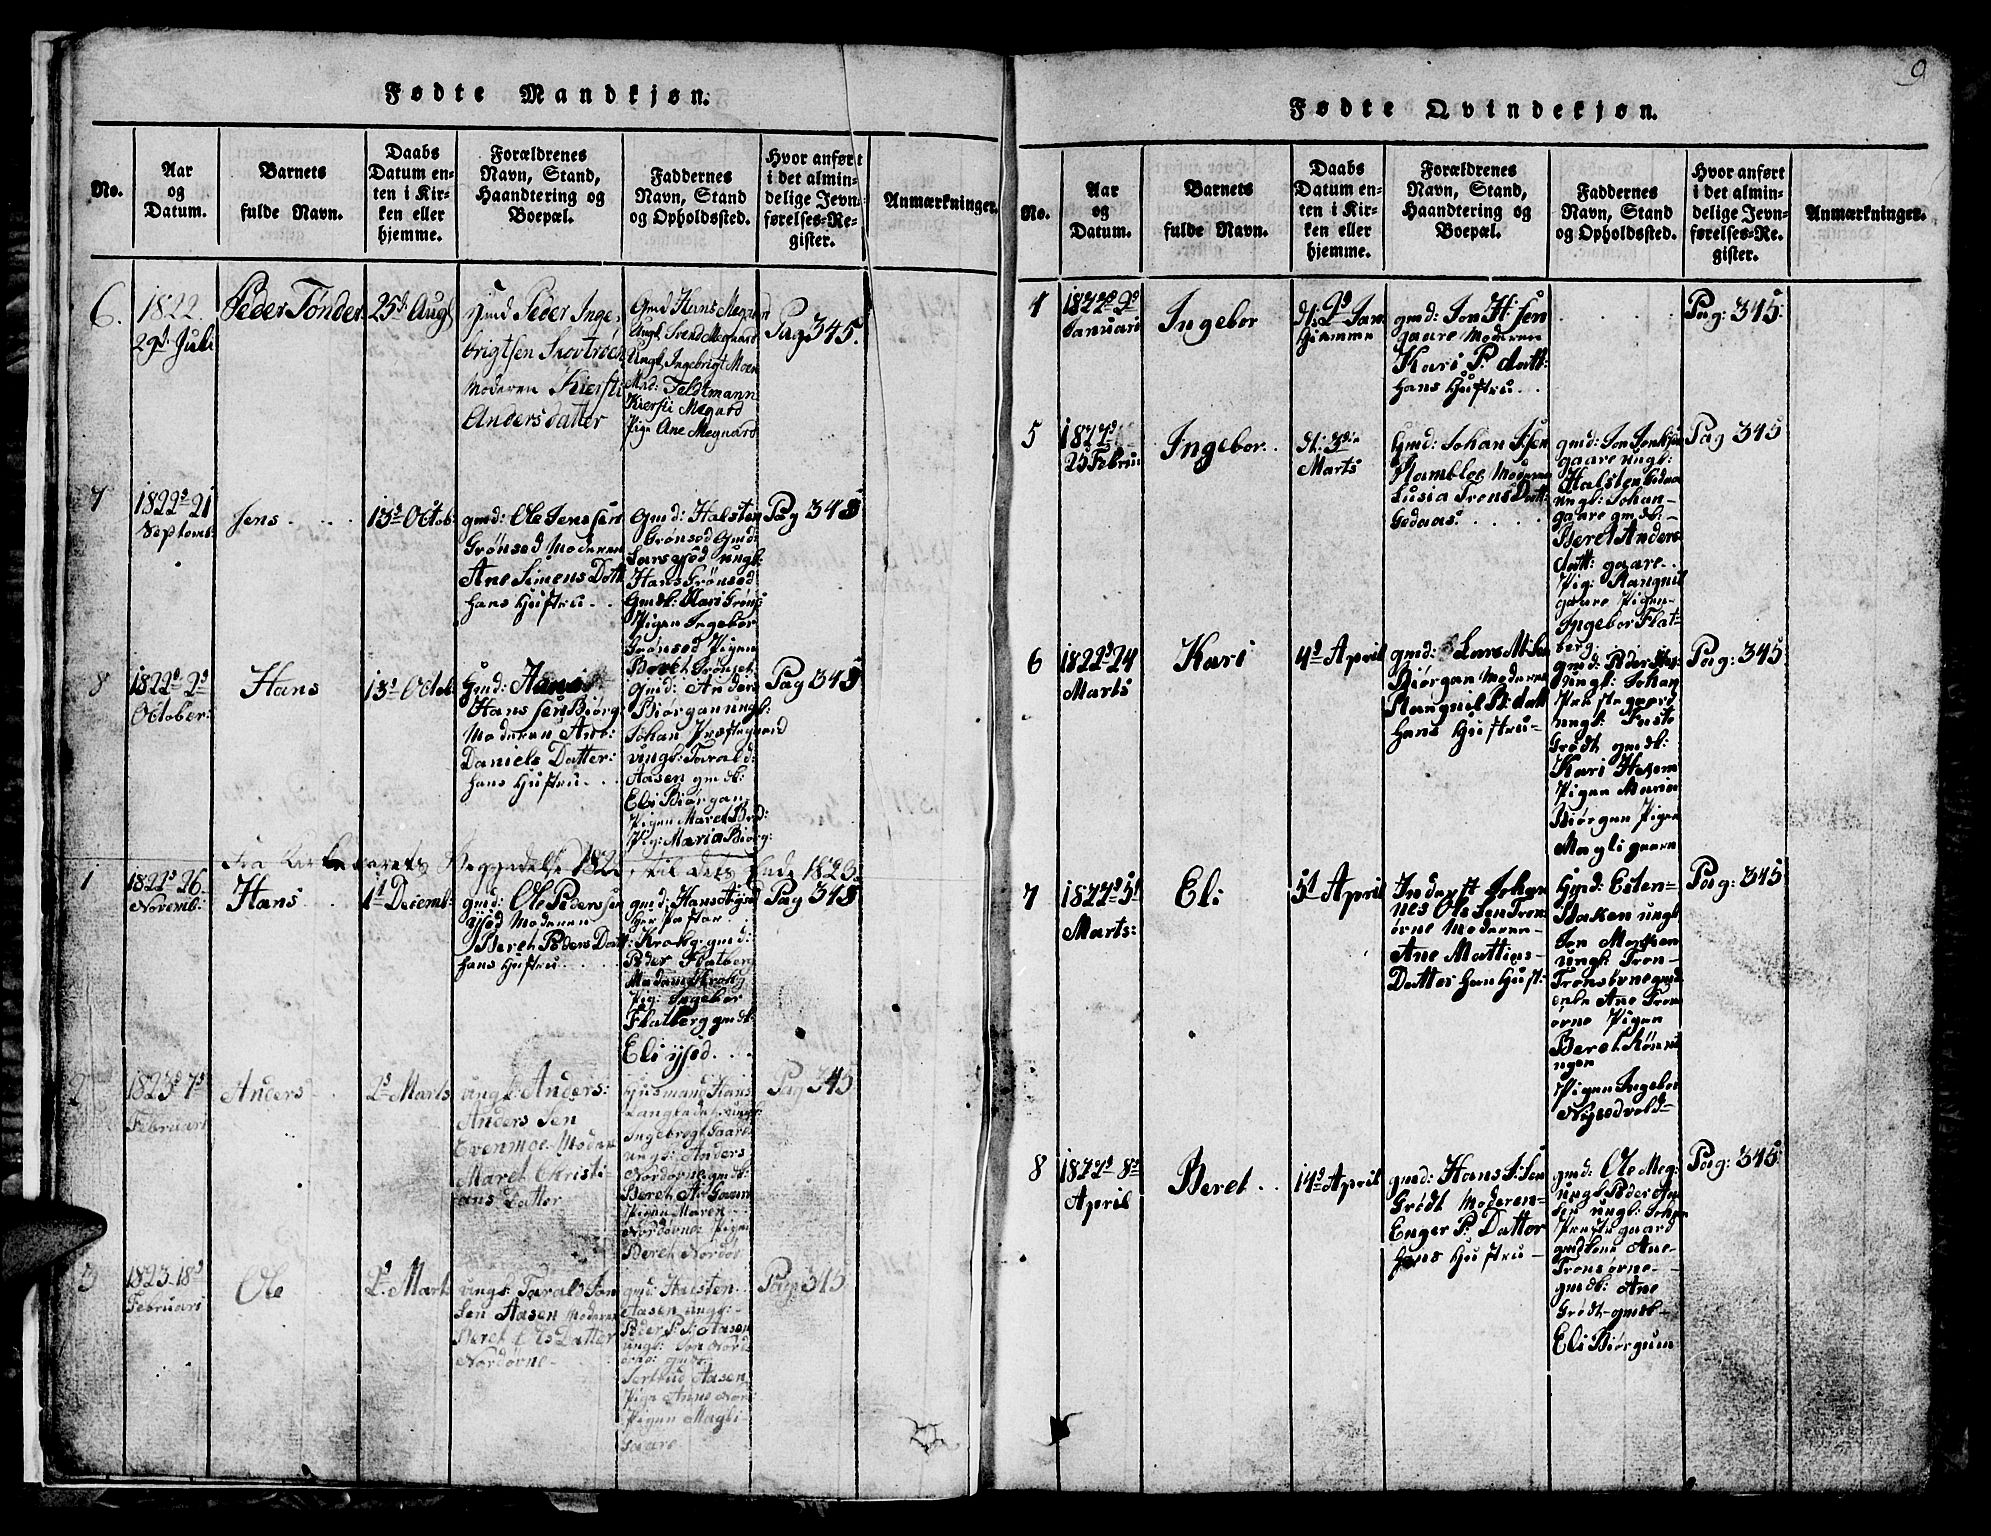 Fødte Mandkjøn.
No.
Aar
og
Datum.
Barnets
fulde Navn.
Daabs
Datum en-
ten i Kir-
ken eller
hjemme.
Forældrenes
Navn, Stand,
Haandtering og
Boepæl.
Faddernes
Navn, Stand
og Opholdssted.
Hvor anført
i det almin-
delige Jevn-
førelses-Re-
gister.
Anmærkninger.
6.
1822.
29d Juli
Peder Tønder
25de Augl
Gmd Peder Inge-
brigtsen
Moderen Kiersti
Andersdatter
Gmd Hans Megaard
Ungk Svend Megaard
Ungk Ingebrigt Moen
Mad: Feldtmann
Kiersti Megard
Pige Ane Megaard
Pag 345.
7
1822d 21
Septemb:
Jens
13d Octob:
gmd: Ole Jenssen
Grønsød Moderen
Ane Simens Datt
hans Hustru
Gmd: Halsten
Grønsød Gmd:
Lars øsød ungk:
Hans Grønsød
Gmdk: Mari Grøns
Pigen Ingebor
Grønsød Pigen
Beret Grønset
Pag 345
8
1822d 2d
October:
Hans
13d Octob
Gmd: Hans
Hanssen Biørg
Moderen Anb:
Daniels Datter:
hans Hustru
gmd: Anders
Biørgan ungk:
Johan Præstegaard
ungk: Tarald:
Aasen gmdk:
Eli Biørgan
Pigen Maret
Pig: Maria Biørg:
Pag 345
Fra Kirkeaarets Begyndelse 1822 til dets Ende 1823
1
1822d 26
Novemb:
Hans
1d Decemb:
gmd: Ole Pederssen
øsød Moderen
Beret Peders Datt:
hans Hustru
gmd: Hans
Krokg: gmd:
Peder Flatberg
Madame Krokg
Pig: Ingebor
Flatberg gmdk:
Eli øsød
Pag 345
2
1823d 7d
Februari
Anders
2d Marts
ungk: Anders:
Anders Sen
Evenmoe Moderen
Maret Christi-
ans Datter
Husmand Hans
Langladet ungk:
Ingebregt Gaare
ungk: Anders
Nordørne gmdk:
Beret A: Gaare
Pigen Maren
Nordørne Pigen
Beret Nordør
Pag 345
3
1823 18d
Februari
Ole
2d Marts
ungk: Tarald Jon
Sen Aasen Moderen
Beret Ols Datter
Nordørne
gmd: Halsten
Aasen ungk:
Peder P: S: Aasen
ungk: Jon Nord
ørne: gmdk:
Gertrud Aasen
Pige Anne Nor:
Pigen Magli
Gaare
Pag 345
9
Fødte Qvindekjøn.
No.
Aar
og
Datum.
Barnets
fulde Navn.
Daabs
Datum en-
ten i Kir-
ken eller
hjemme.
Forældrenes
Navn, Stand,
Haandtering og
Boepæl.
Faddernes
Navn, Stand
og Opholdssted.
Hvor anført
i det almin-
delige Jevn-
førelses-Re-
gister.
Anmærkninger.
4
1822d 9d
Januari
Ingebor
dt: 9d Jan
Hiemme
gmd: Jon H: Sen
gaare Moderen
Kari P. datt:
hans Hustru
Pag: 345
5
1822d
25 Februi
Ingebor
dt: 3d
Marts
Gmd: Johan J: Sen
Ramblee Moderen
Lusia Trons Datt:
Gedaas
gmd: Jon
gaare ungk:
Halsten
ungk: Johan
gaare gmdk:
Beret Anders
datt: gaare
Pig: Rangnil
gaare Pigen
Ingebor Flat-
berg
Pag 345
6
1822d 24
Marts
Kari
4d April
gmd: Lars M: Sen
Biørgan Moderen
Rangnil P: datt
hans Hustru
gmd: Peder
ungk: Johan
Præstegaard
ungk: Juste
Grødt gmdk:
Kari
Pigen Maria
Biørgan Pigen
Magli gaare
Pag: 345
7
1822d 5d
Marts:
Eli
5d April
Inderst Johan
nes Ole Sen Tron
ørne Moderen
Ane Mattias
Datter Hans Hust:
Gmd: Esten
Bakken ungk
Jon Morken
ungk: Tron
Tronsørne gmd
enke Ane Tron
ørne Pigen
Beret Rønnin
ngen
Pigen Ingebor
Nysedvold
Pag: 345
8
1822d 8d
April
Beret
14d April
gmd: Hans J: Sen
Grødt Moderen
Enger P: Datter
hans Hustru
gmd: Ole Meg:
ungk Peder An
Sen ungk: Johan
Præstegaard
gmdkone Ane
Tronsørne
gmdk: Ane
Grødt gmdk
Eli Biørgum
Pag: 345